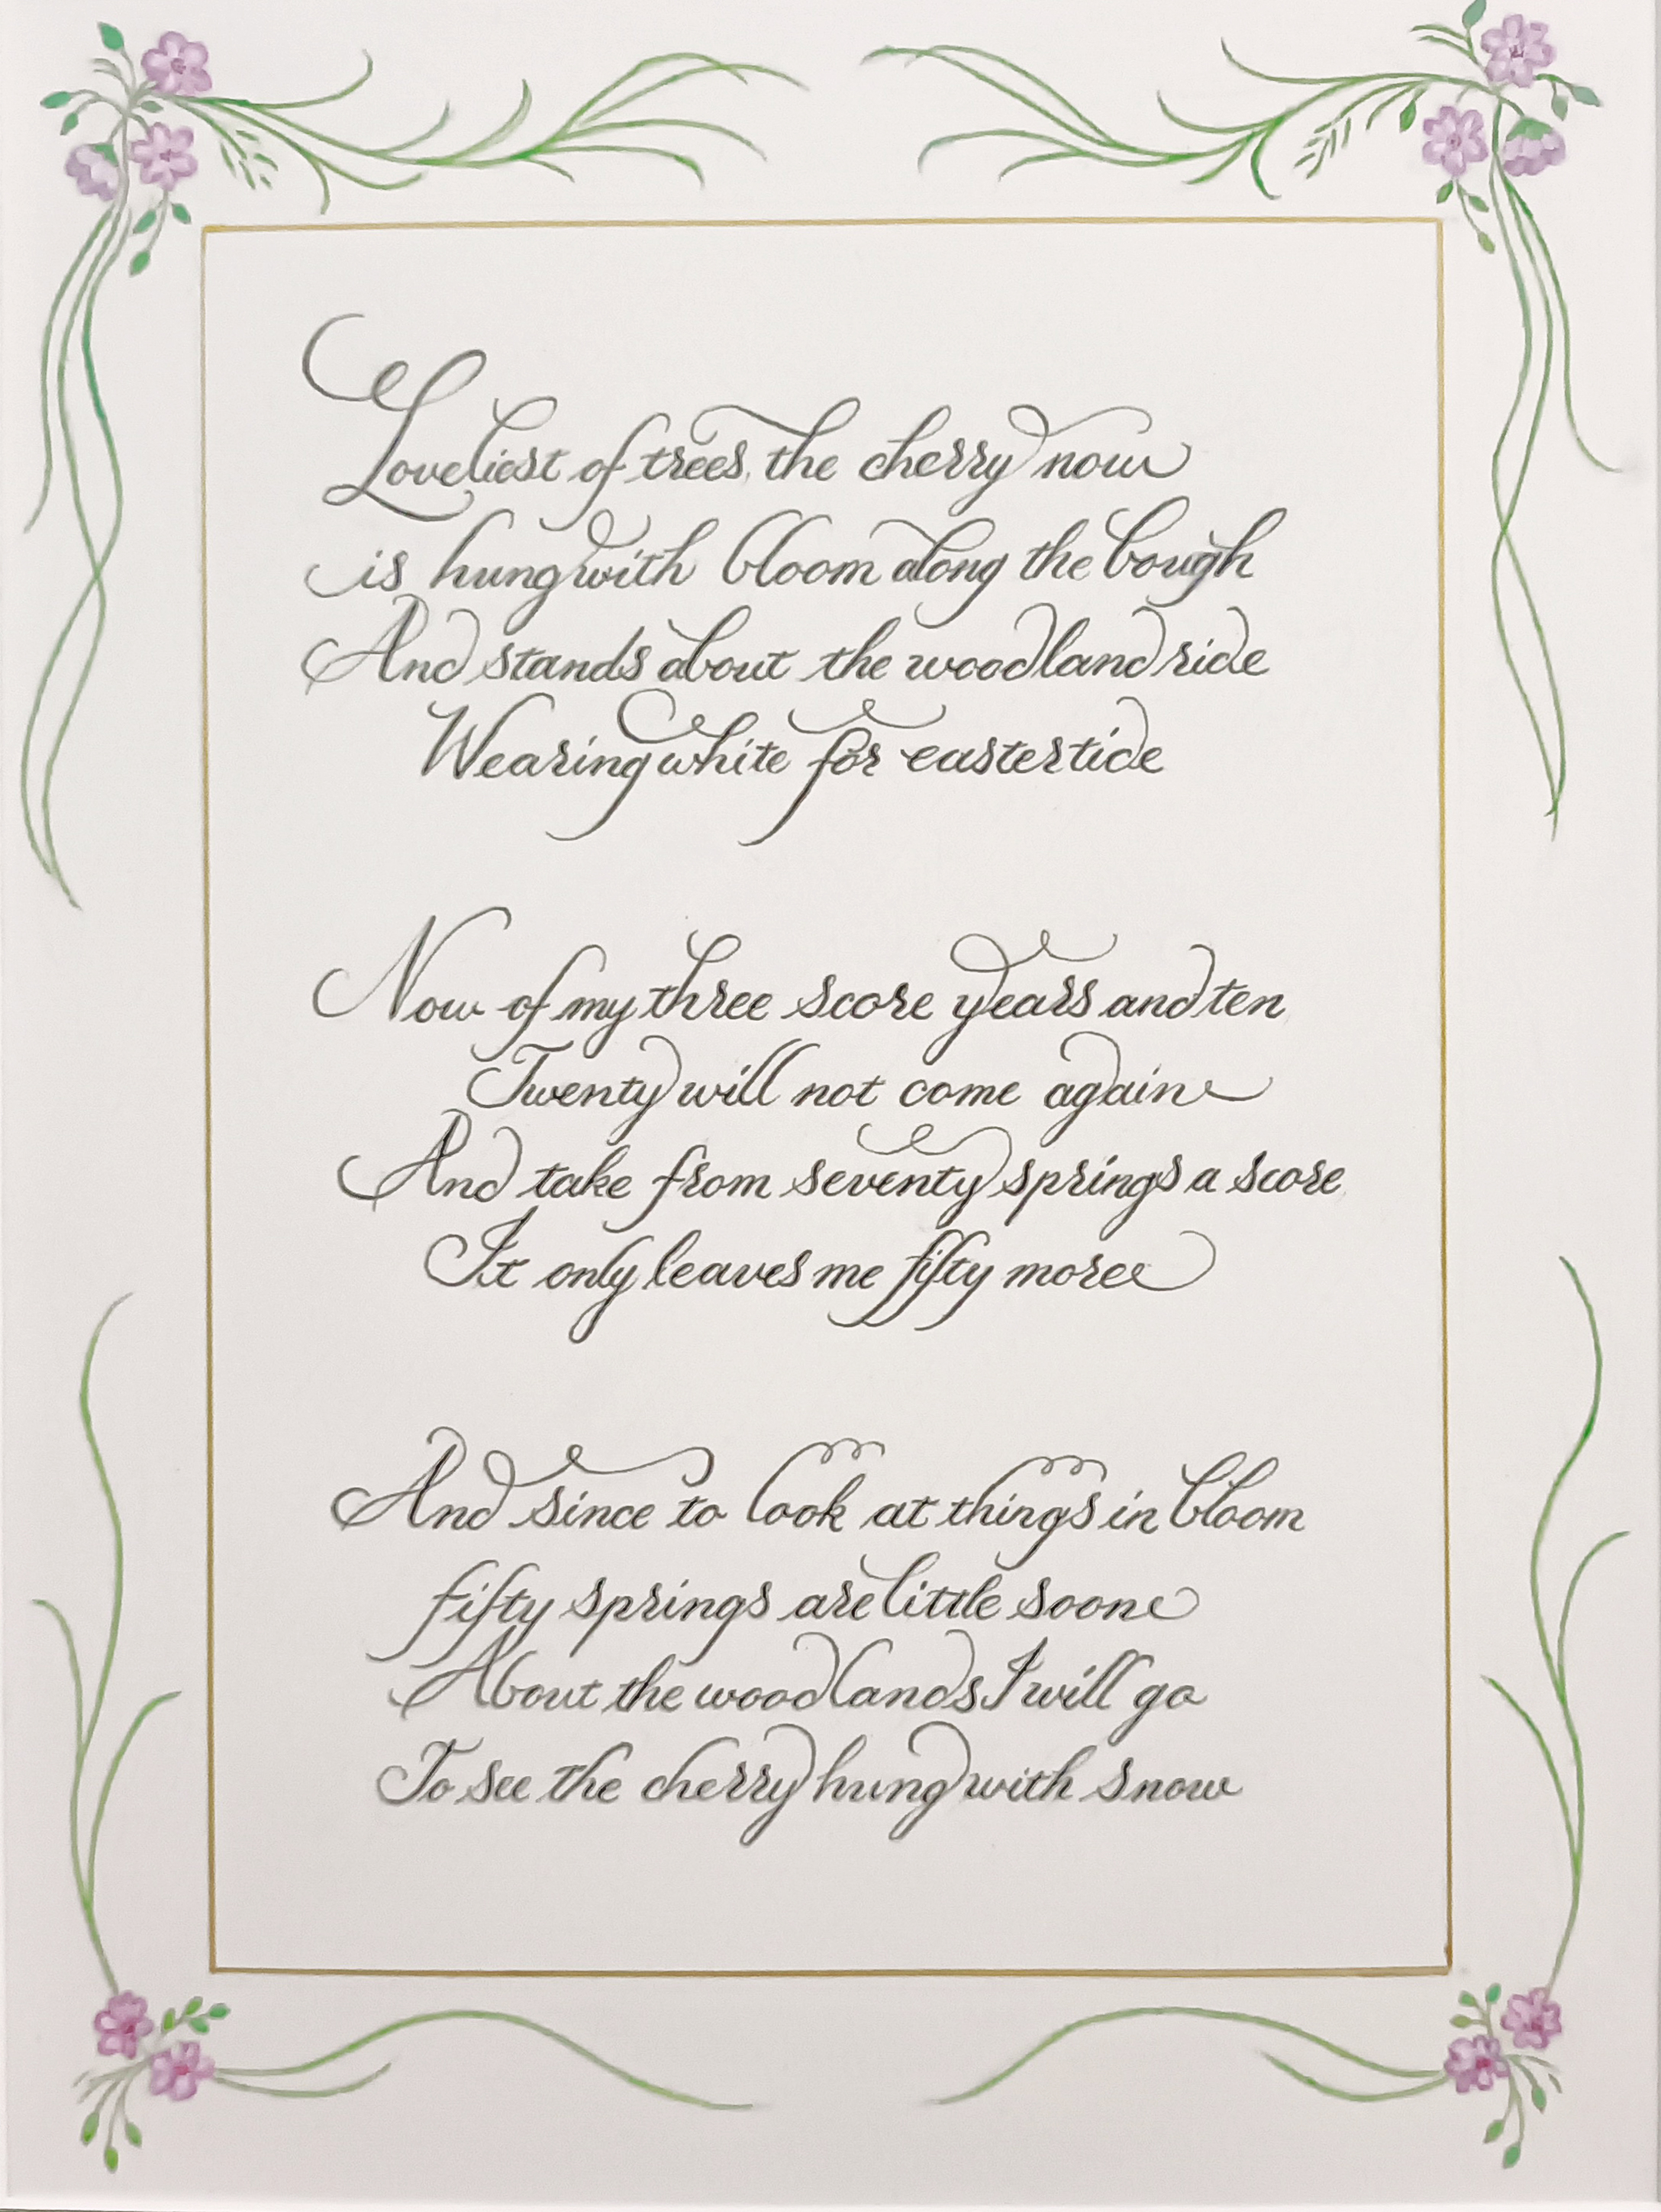 Loveliest of trees, the cherry now
is hung with bloom along the bough
And stands about the woodland ride
Wearing white for eastertide
Now of my three score years and ten
Twenty will not come again
And take from seventy springs a score
It only leaves me fifty more
And since to look at things in bloom
fifty springs are little soon
About the woodlands I will go
To see the cherry hung with snow